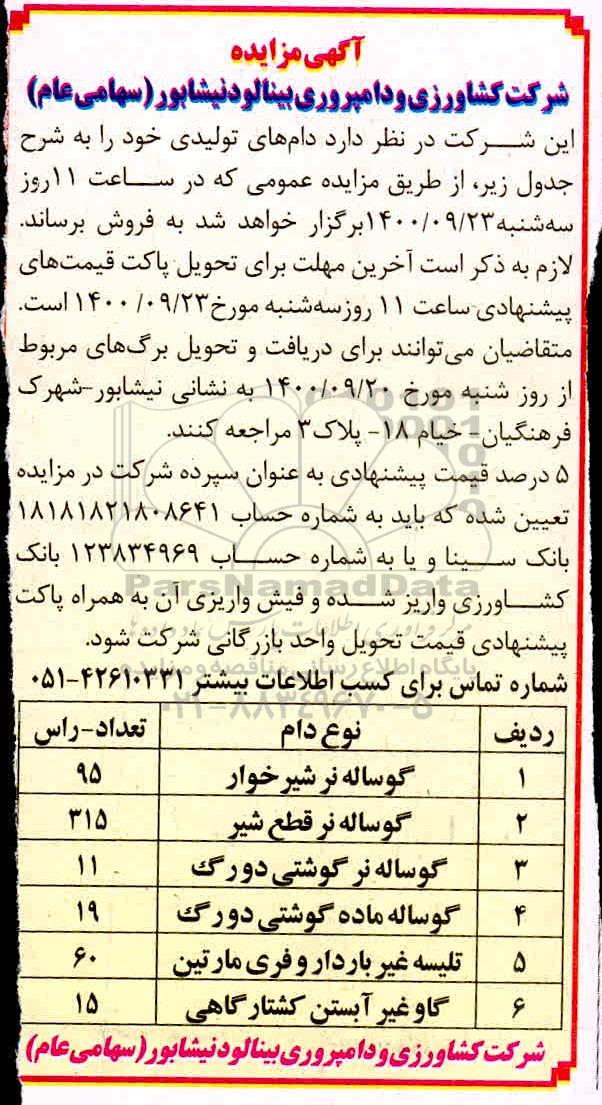 آگهی مزایده
شرکت کشاورزی و دامپروری بینالود نیشابور (سهامی عام)
این شرکت در نظر دارد دام‌های تولیدی خود را به شرح
جدول زیر، از طریق مزایده عمومی که در ساعت ۱۱روز
سه‌شنبه۱۴۰۰/۰۹/۲۳برگزار خواهد شد به فروش برساند.
لازم به ذکر است آخرین مهلت برای تحویل پاکت قیمت‌های
پیشنهادی ساعت ۱۱ روزسه‌شنبه مورخ۱۴۰۰/۰۹/۲۳ است.
متقاضیان می‌توانند برای دریافت و تحویل برگ‌های مربوط
از روز شنبه مورخ ۱۴۰۰/۰۹/۲۰ به نشانی نیشابور-شهرک
فرهنگیان- خیام ۱۸- پلاک۳ مراجعه کنند.
۵ درصد قیمت پیشنهادی به عنوان سپرده شرکت در مزایده
تعیین شده که باید به شماره حساب ۱۸۱۸۱۸۲۱۸۰۸۶۴۱
بانک سینا و یا به شماره حساب ۱۲۳۸۳۴۹۶۹ بانک
ParsNamadData
کشاورزی واریز شده و فیش واریزی آن به همراه پاکت
پیشنهادی قیمت تحویل واحد بازرگانی شرکت شود.
پایگاه اطلاع رسانی مناقصه و مزایده
شماره تماس برای کسب اطلاعات بیشتر ۴۲۶۱۰۳۳۱-۰۵۱
۰۲۱-۸۸۳۴۹۶۷۰-۵
ردیف نوع دام تعداد-راس
۱ گوساله نر شیر خوار ۹۵
۲ گوساله نر قطع شیر ۳۱۵
۳ گوساله نر گوشتی دو رگ ۱۱
۴ گوساله ماده گوشتی دو رگ ۱۹
۵ تلیسه غیر باردار و فری مارتین ۶۰
۶ گاو غیر آبستن کشتار گاهی ۱۵
شرکت کشاورزی و دامپروری بینالود نیشابور (سهامی عام)